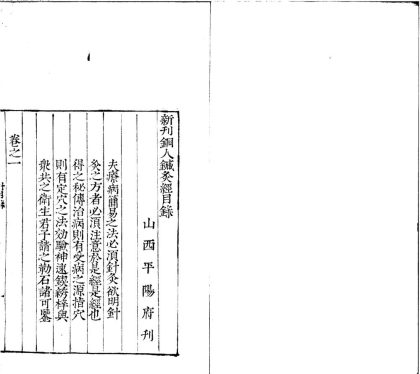 新刊銅人鍼灸經目錄
山西平陽府刊
夫療病簡易之法必須針灸欲明針
灸之方者必須注意於是經是經也
得之秘傳治病則有受病之源指穴
則有定穴之法効驗神速鋟綉梓與
衆共之衛生君子請之勒石諸可鑒
卷之一